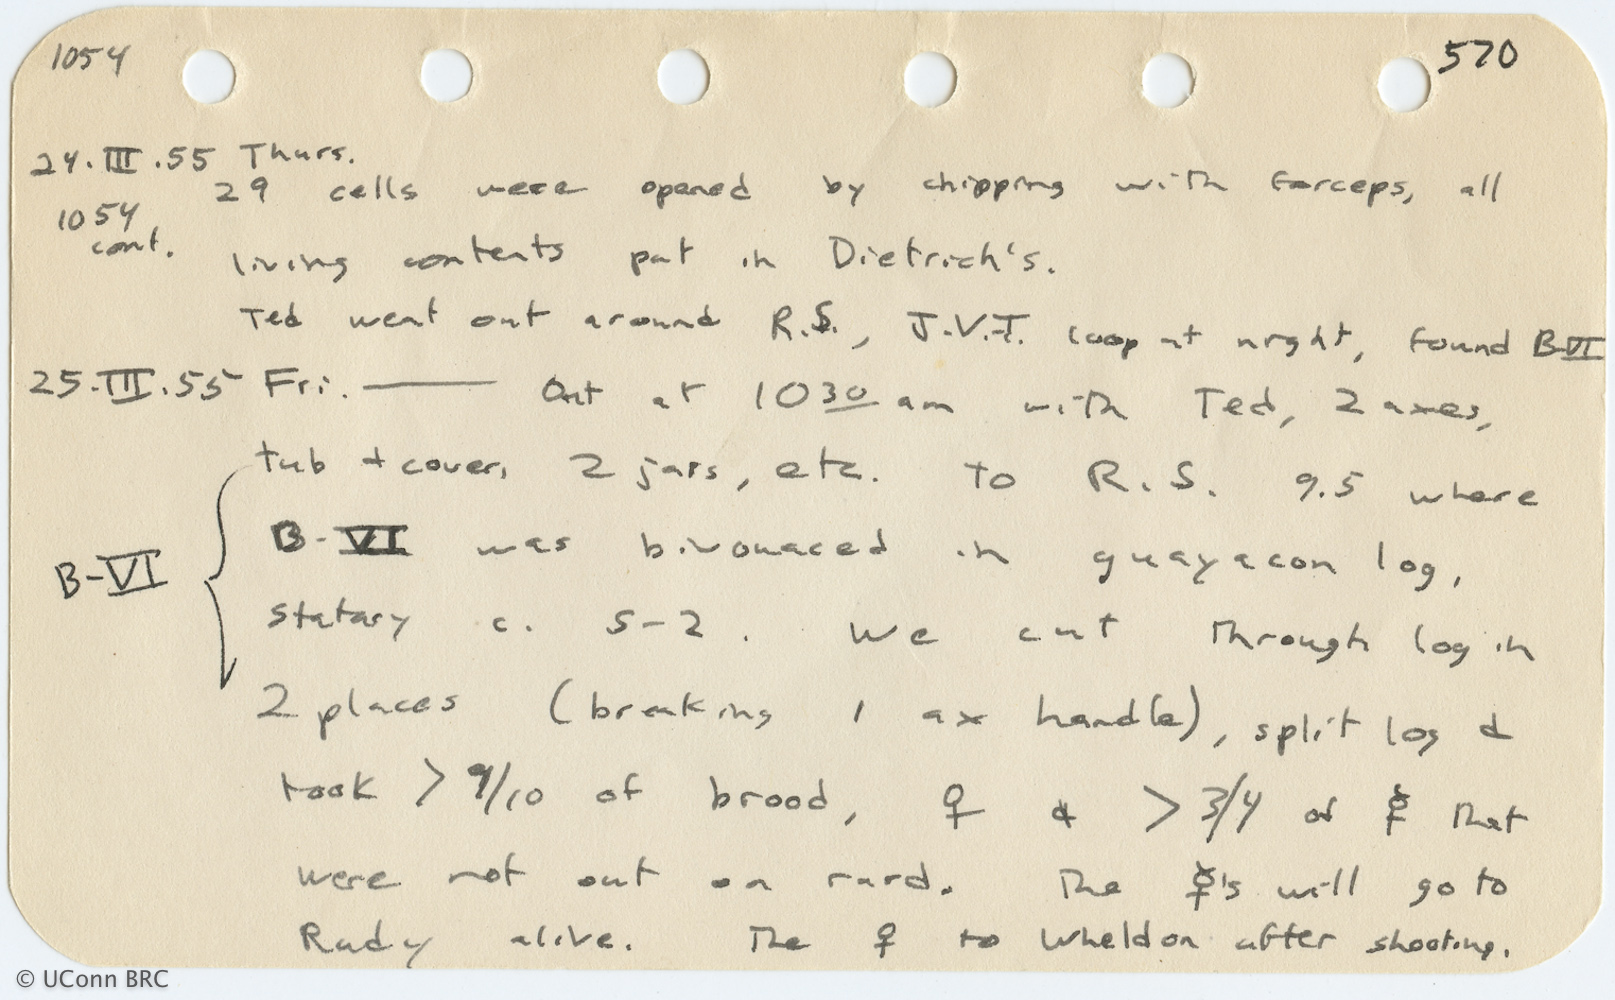 1054 570
24.III.55 Thurs.
29 cells were opened by chipping with forceps, all
1054
cont.
living contents put in Dietrich's.
Ted went out around R.S., J.V.T. loop at night, found B-VI
25.III.55 Fri. —— Out at 1030 am with Ted, 2 axes,
tub + cover, 2 jars, etc. To R.S. 9.5 where
B-VI was bivouaced in guayacon log,
B-VI
statary c. S-2. We cut through log in
2 places (breaking 1 ax handle), split log &
took > 9/10 of brood, ♀ & > 3/4 of ☿ that
were not out on raid. The ☿'s will go to
Rudy alive. The ♀ to Wheldon after shooting.
© UConn BRC